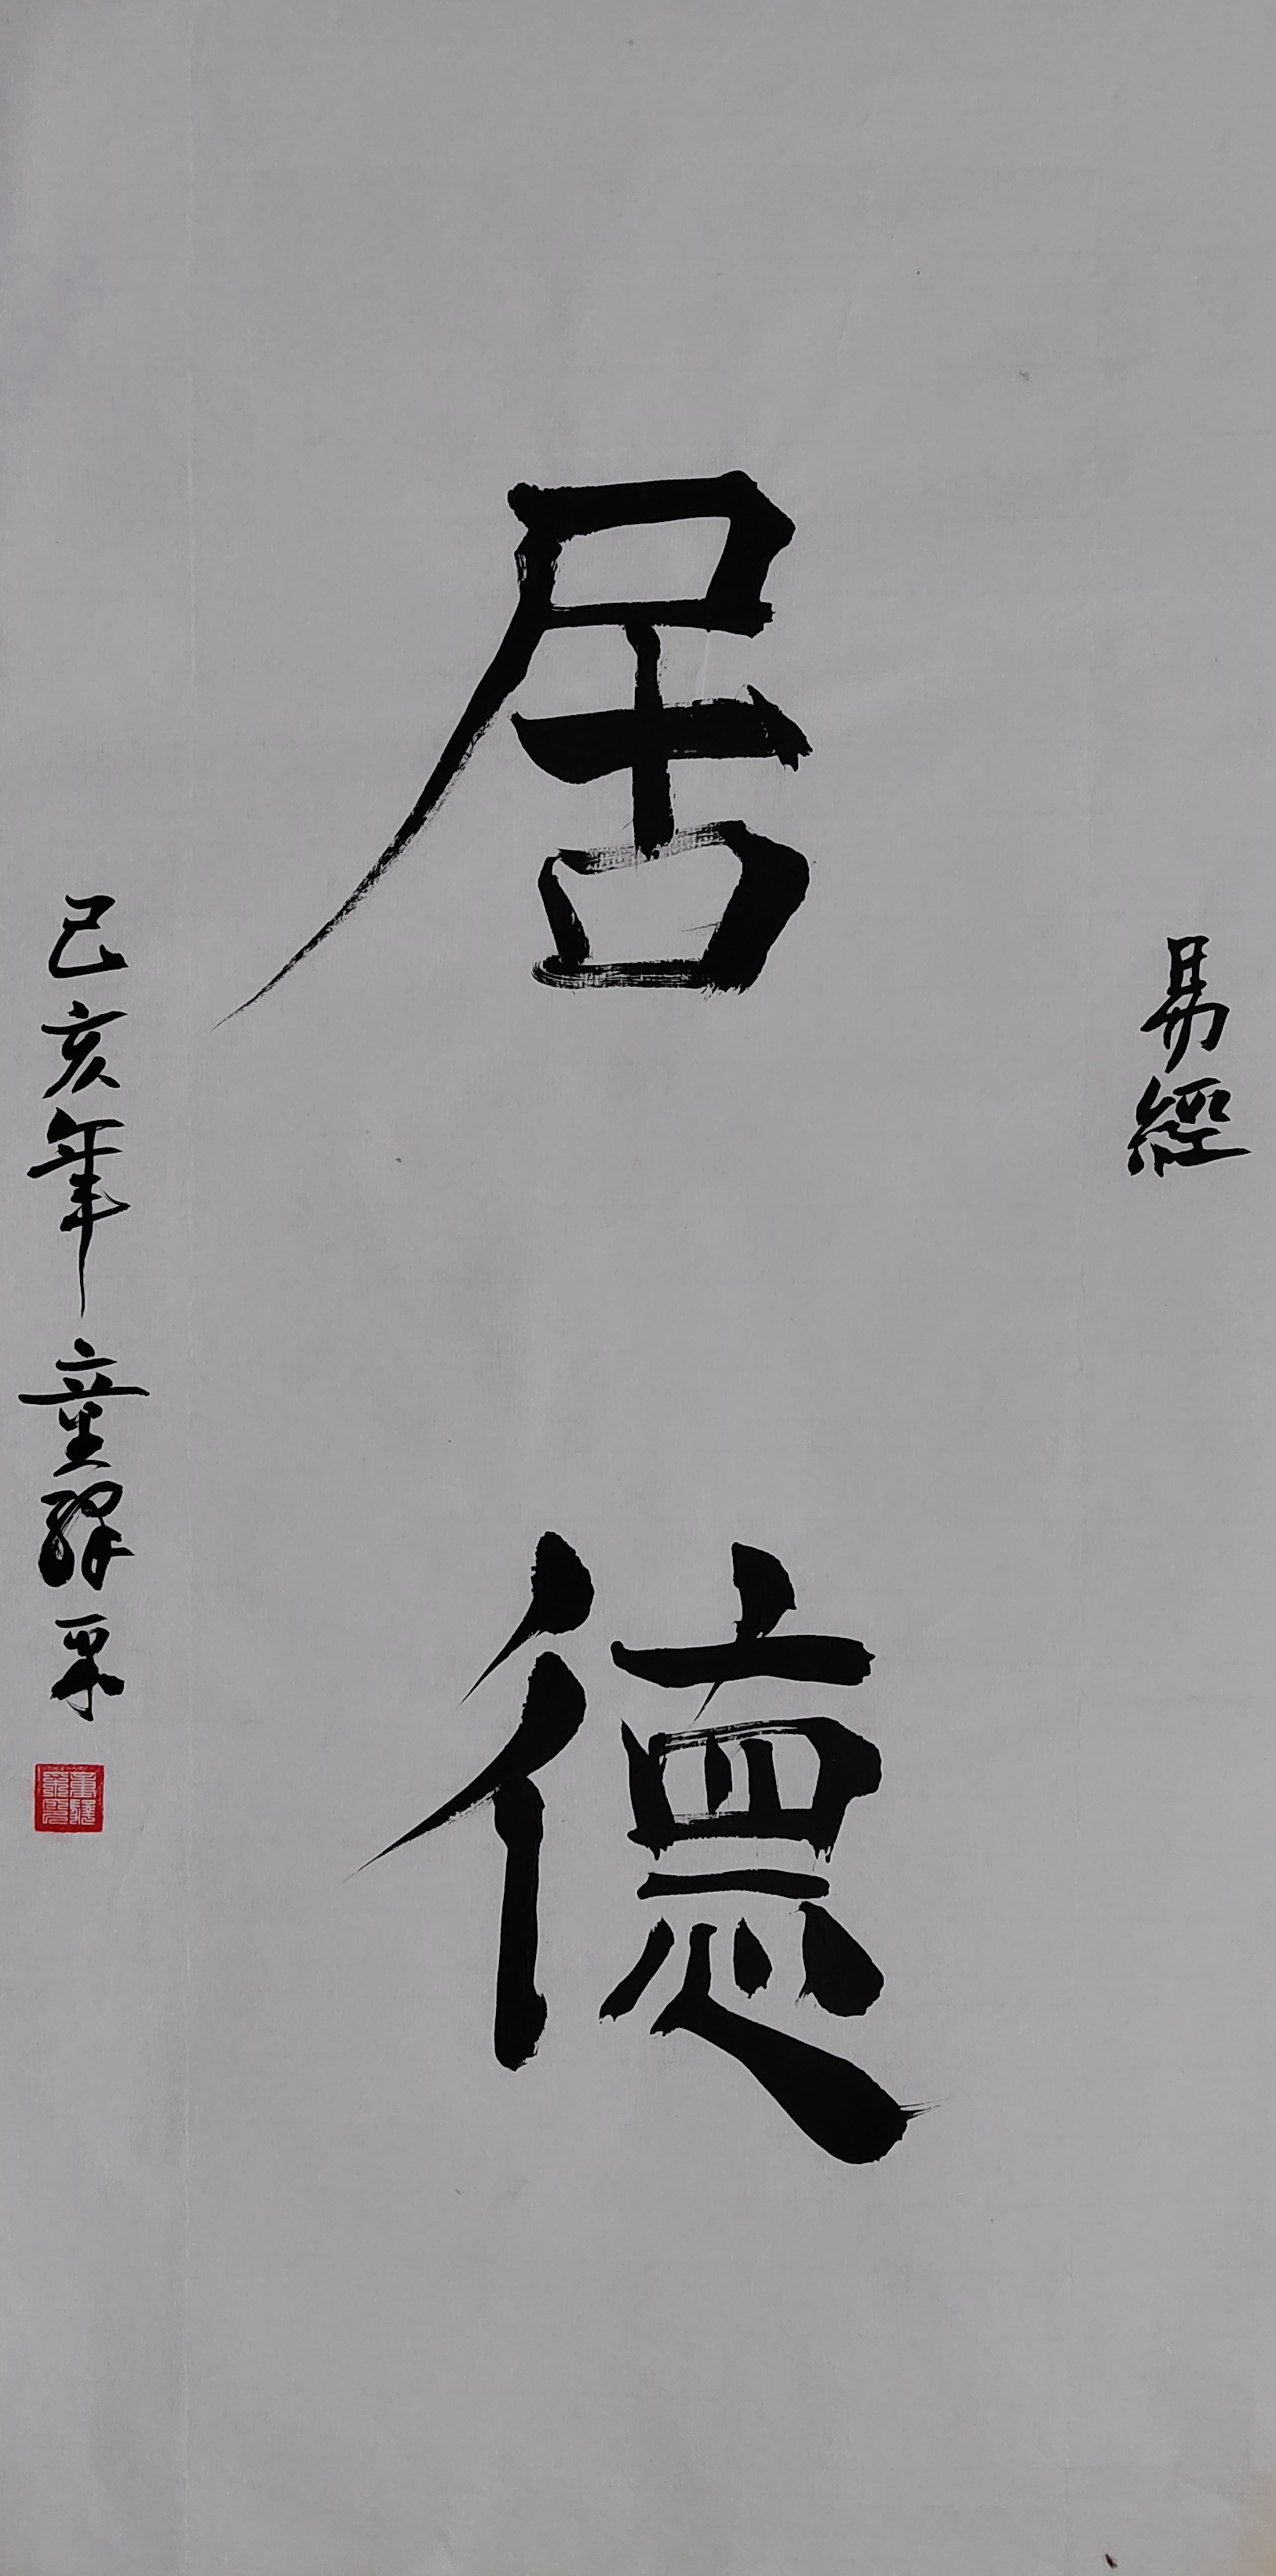 易經
居德
己亥年 童驛平